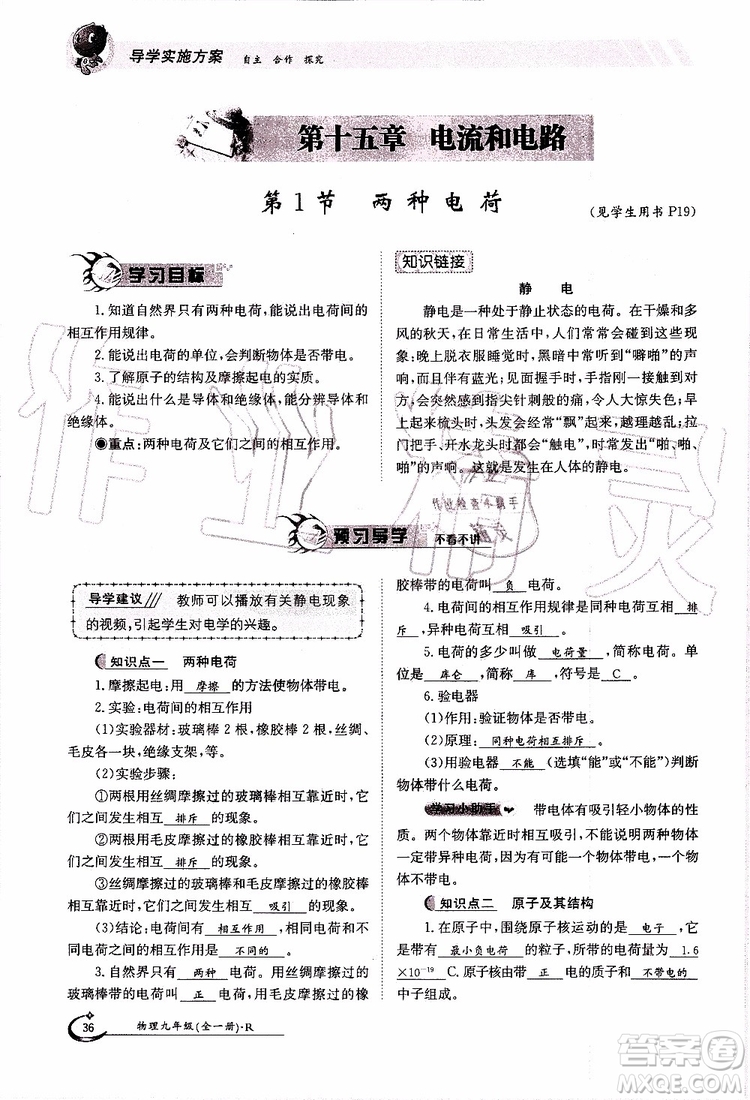 导学实施方案 自主 合作 探究
第十五章 电流和电路
第1节 两种电荷
(见学生用书 P19)
学习目标
1. 知道自然界只有两种电荷,能说出电荷间的
相互作用规律。
2. 能说出电荷的单位,会判断物体是否带电。
3. 了解原子的结构及摩擦起电的实质。
4. 能说出什么是导体和绝缘体,能分辨导体和
绝缘体。
●重点:两种电荷及它们之间的相互作用。
知识链接
静 电
静电是一种处于静止状态的电荷。在干燥和多
风的秋天,在日常生活中,人们常常会碰到这种现
象:晚上脱衣服睡觉时,黑暗中常听到“噼啪”的声
响,而且伴有蓝光;见面握手时,手指刚一接触到对
方,会突然感到指尖针刺般的痛,令人大惊失色;早
上起来梳头时,头发会经常“飘”起来,越理越乱;拉
门把手、开水龙头时都会“触电”,时常发出“啪、啪、
啪”的声响。这就是发生在人体的静电。
预习导学 不看不讲
导学建议 教师可以播放有关静电现象
的视频,引起学生对电学的兴趣。
知识点一 两种电荷
1. 摩擦起电:用 摩擦 的方法使物体带电。
2. 实验:电荷间的相互作用
(1)实验器材:玻璃棒 2 根,橡胶棒 2 根,丝绸、
毛皮各一块,绝缘支架,等等。
(2)实验步骤:
①两根用丝绸摩擦过的玻璃棒相互靠近时,它
们之间发生相互 排斥 的现象。
②两根用毛皮摩擦过的橡胶棒相互靠近时,它
们之间发生相互 排斥 的现象。
③丝绸摩擦过的玻璃棒和毛皮摩擦过的橡胶棒
相互靠近时,它们之间发生相互 吸引 的现象。
(3)结论:电荷间有 相互作用 ,同种电荷和
异种电荷之间的相互作用是 不同的 。
3. 自然界只有 两种 电荷。丝绸摩擦过的
玻璃棒所带的电荷叫 正 电荷,毛皮摩擦过的橡
胶棒带的电荷叫 负 电荷。
4. 电荷间的相互作用规律是同种电荷相互 排
斥 ,异种电荷相互 吸引 。
5. 电荷的多少叫 电荷量 ,简称电荷。单位
是 库仑 ,简称 库 ,符号是 C 。
6. 验电器
(1)作用:验证物体是否带电。
(2)原理: 同种电荷相互排斥 。
(3)用验电器 不能 (选填“能”或“不能”)判断
物体带什么电荷。
学习小助手 带电体有吸引轻小物体的性
质。两个物体靠近时相互吸引,不能说明两个物体一
定带异种电荷,有可能其中一个物体不带电。
知识点二 原子及其结构
1. 在原子中,围绕原子核运动的是 电子 ,它
是带有 最小负电荷 的粒子,所带的电荷量为 1.6
×10⁻¹⁹ C. 原子核由带 正 电的质子和 不带电的
中子组成。
36 物理九年级(全一册)·R
作业精灵
作业检查小助手
精灵
答案圈
MXQE.COM